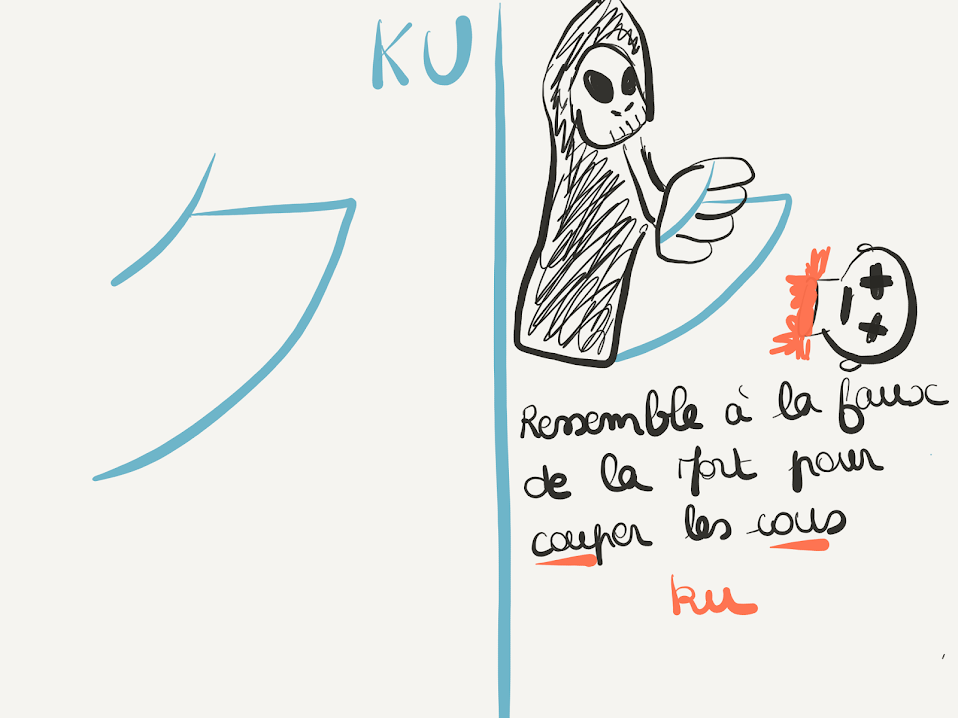 KU
ク
Ressemble à la faux
de la Mort pour
couper les cous
ku